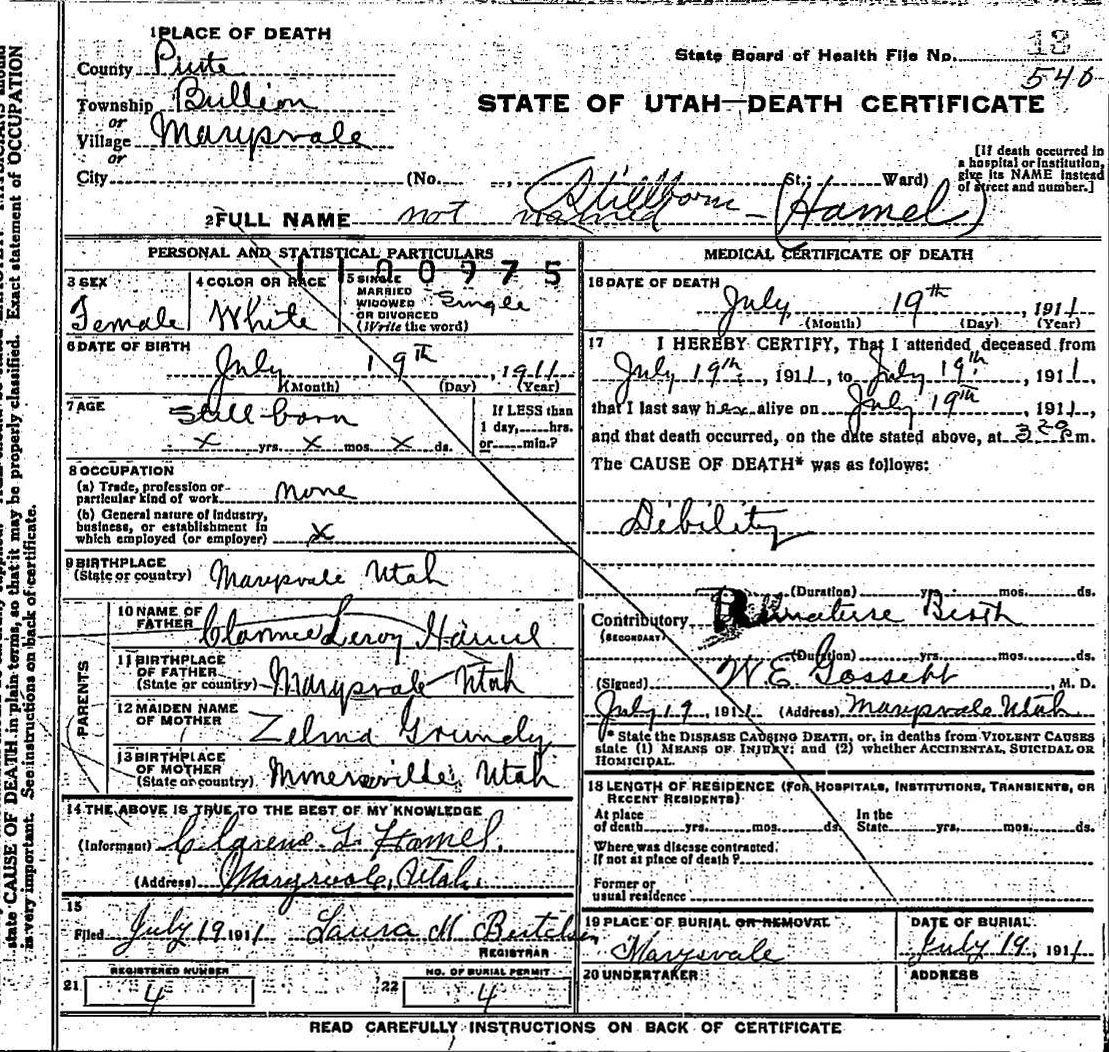 1 PLACE OF DEATH
County Piute
Township Bullion
or
Village Marysvale
or
City (No. , St.; Ward)
State Board of Health File No. 13
540
STATE OF UTAH—DEATH CERTIFICATE
[If death occurred in
a hospital or institution,
give its NAME instead
of street and number.]
2 FULL NAME not named Stillborn - (Hamel)
PERSONAL AND STATISTICAL PARTICULARS
1100975
3 SEX
Female
4 COLOR OR RACE
White
5 SINGLE
MARRIED
WIDOWED
OR DIVORCED
(Write the word)
Single
6 DATE OF BIRTH
July 19th, 1911
(Month) (Day) (Year)
7 AGE
Still born
x yrs. x mos. x ds.
If LESS than
1 day, hrs.
or min.?
8 OCCUPATION
(a) Trade, profession or
particular kind of work none
(b) General nature of industry,
business, or establishment in
which employed (or employer) x
9 BIRTHPLACE
(State or country) Marysvale Utah
PARENTS
10 NAME OF
FATHER Clarence Leroy Hamel
11 BIRTHPLACE
OF FATHER
(State or country) Marysvale Utah
12 MAIDEN NAME
OF MOTHER Zelma Grundy
13 BIRTHPLACE
OF MOTHER
(State or country) Minersville Utah
14 THE ABOVE IS TRUE TO THE BEST OF MY KNOWLEDGE
(Informant) Clarene L Hamel
(Address) Marysvale, Utah.
15
Filed July 19 1911 Laura M
REGISTRAR
REGISTERED NUMBER
21 4
NO. OF BURIAL PERMIT
22 4
MEDICAL CERTIFICATE OF DEATH
16 DATE OF DEATH
July 19th, 1911
(Month) (Day) (Year)
17 I HEREBY CERTIFY, That I attended deceased from
July 19th, 1911, to July 19th, 1911,
that I last saw her alive on July 19th, 1911,
and that death occurred, on the date stated above, at 3 20 P m.
The CAUSE OF DEATH* was as follows:
Debility
(Duration) yrs. mos. ds.
Contributory Premature Birth
(SECONDARY)
(Duration) yrs. mos. ds.
(Signed) W. E. Gossett, M. D.
July 19, 1911 (Address) Marysvale Utah
* State the DISEASE CAUSING DEATH, or, in deaths from VIOLENT CAUSES
state (1) MEANS OF INJURY; and (2) whether ACCIDENTAL, SUICIDAL OR
HOMICIPAL.
18 LENGTH OF RESIDENCE (FOR HOSPITALS, INSTITUTIONS, TRANSIENTS, OR
RECENT RESIDENTS)
At place
of death yrs. mos. ds.
In the
State yrs. mos. ds.
Where was disease contracted.
If not at place of death?
Former or
usual residence
19 PLACE OF BURIAL OR REMOVAL
Marysvale
DATE OF BURIAL
July 19, 1911
20 UNDERTAKER
ADDRESS
READ CAREFULLY INSTRUCTIONS ON BACK OF CERTIFICATE
state CAUSE OF DEATH in plain terms, so that it may be properly classified. Exact statement of OCCUPATION
is very important. See instructions on back of certificate.